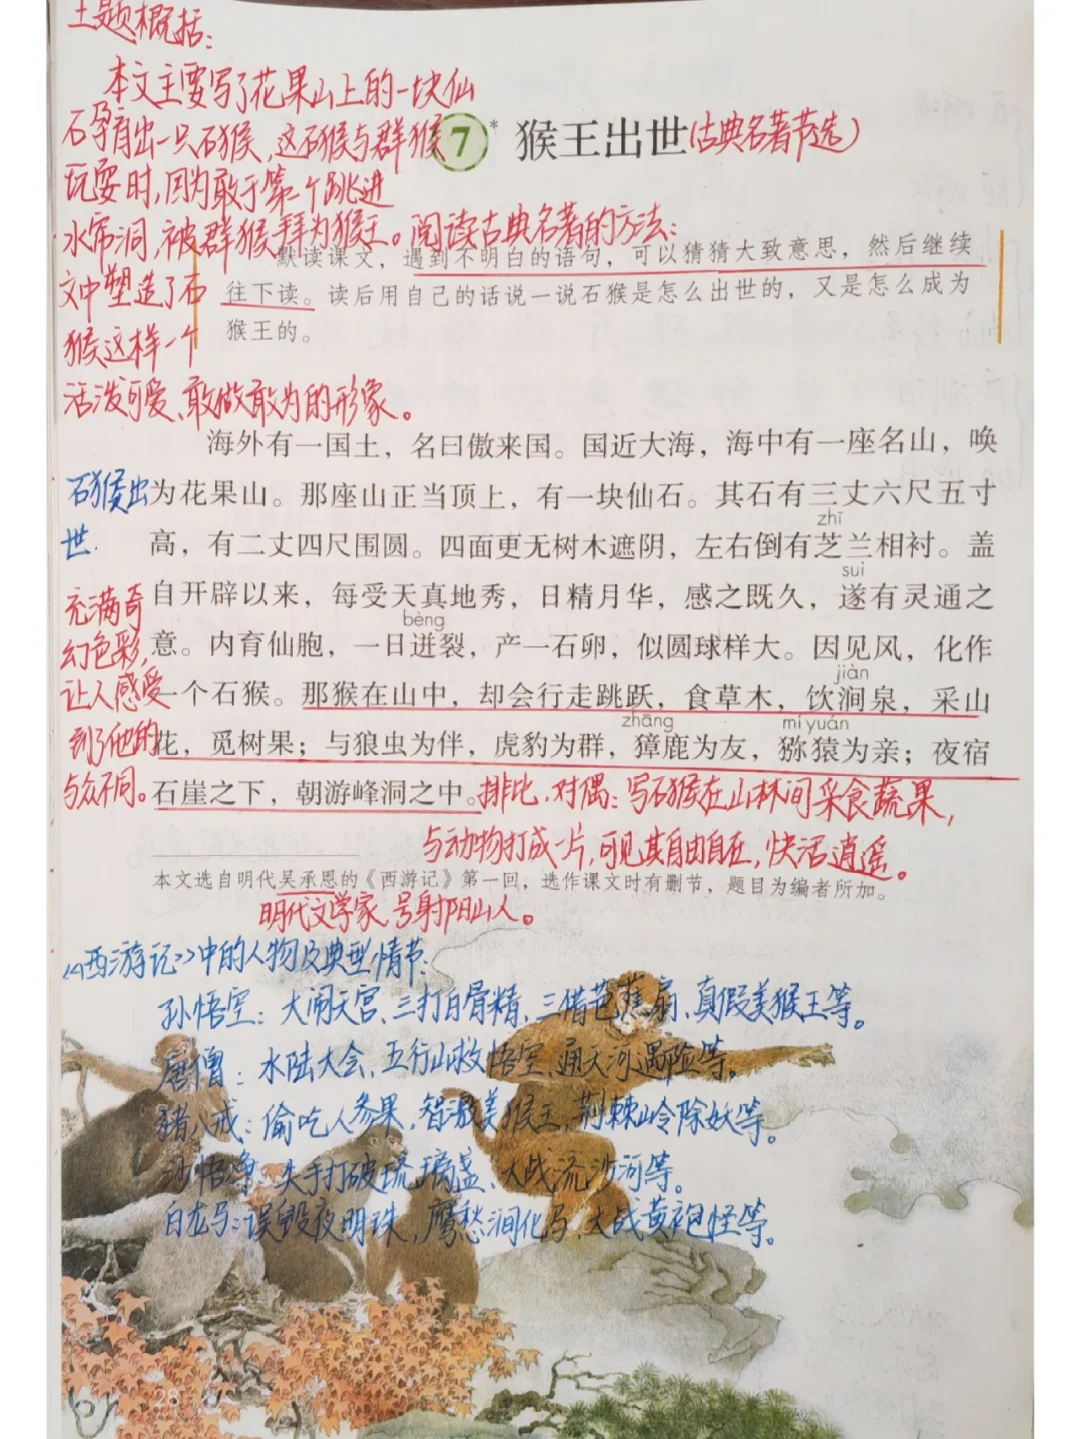 主题概括：
本文主要写了花果山上的一块仙
石孕育出一只石猴，这石猴与群猴
玩耍时，因为敢于第一个跳进
水帘洞，被群猴拜为猴王。
文中塑造了石
猴这样一个
活泼可爱、敢做敢为的形象。
7* 猴王出世(古典名著节选)
阅读古典名著的方法：
默读课文，遇到不明白的语句，可以猜猜大致意思，然后继续
往下读。读后用自己的话说一说石猴是怎么出世的，又是怎么成为
猴王的。
海外有一国土，名曰傲来国。国近大海，海中有一座名山，唤
为花果山。那座山正当顶上，有一块仙石。其石有三丈六尺五寸
zhī
高，有二丈四尺围圆。四面更无树木遮阴，左右倒有芝兰相衬。盖
suì
自开辟以来，每受天真地秀，日精月华，感之既久，遂有灵通之
bèng
意。内育仙胞，一日迸裂，产一石卵，似圆球样大。因见风，化作
jiàn
一个石猴。那猴在山中，却会行走跳跃，食草木，饮涧泉，采山
zhāng mí yuán
花，觅树果；与狼虫为伴，虎豹为群，獐鹿为友，猕猿为亲；夜宿
石崖之下，朝游峰洞之中。
石猴出
世.
充满奇
幻色彩，
让人感受
到了他的
与众不同。
排比、对偶：写石猴在山林间采食蔬果，
与动物打成一片，可见其自由自在，快活逍遥。
本文选自明代吴承恩的《西游记》第一回，选作课文时有删节，题目为编者所加。
明代文学家，号射阳山人。
《西游记》中的人物及典型情节：
孙悟空：大闹天宫、三打白骨精、三借芭蕉扇、真假美猴王等。
唐僧：水陆大会、五行山救悟空、通天河遇险等。
猪八戒：偷吃人参果，智激美猴王，荆棘岭除妖等。
沙悟净：失手打破琉璃盏、大战流沙河等。
白龙马：误毁夜明珠，鹰愁涧化马、大战黄袍怪等。
28